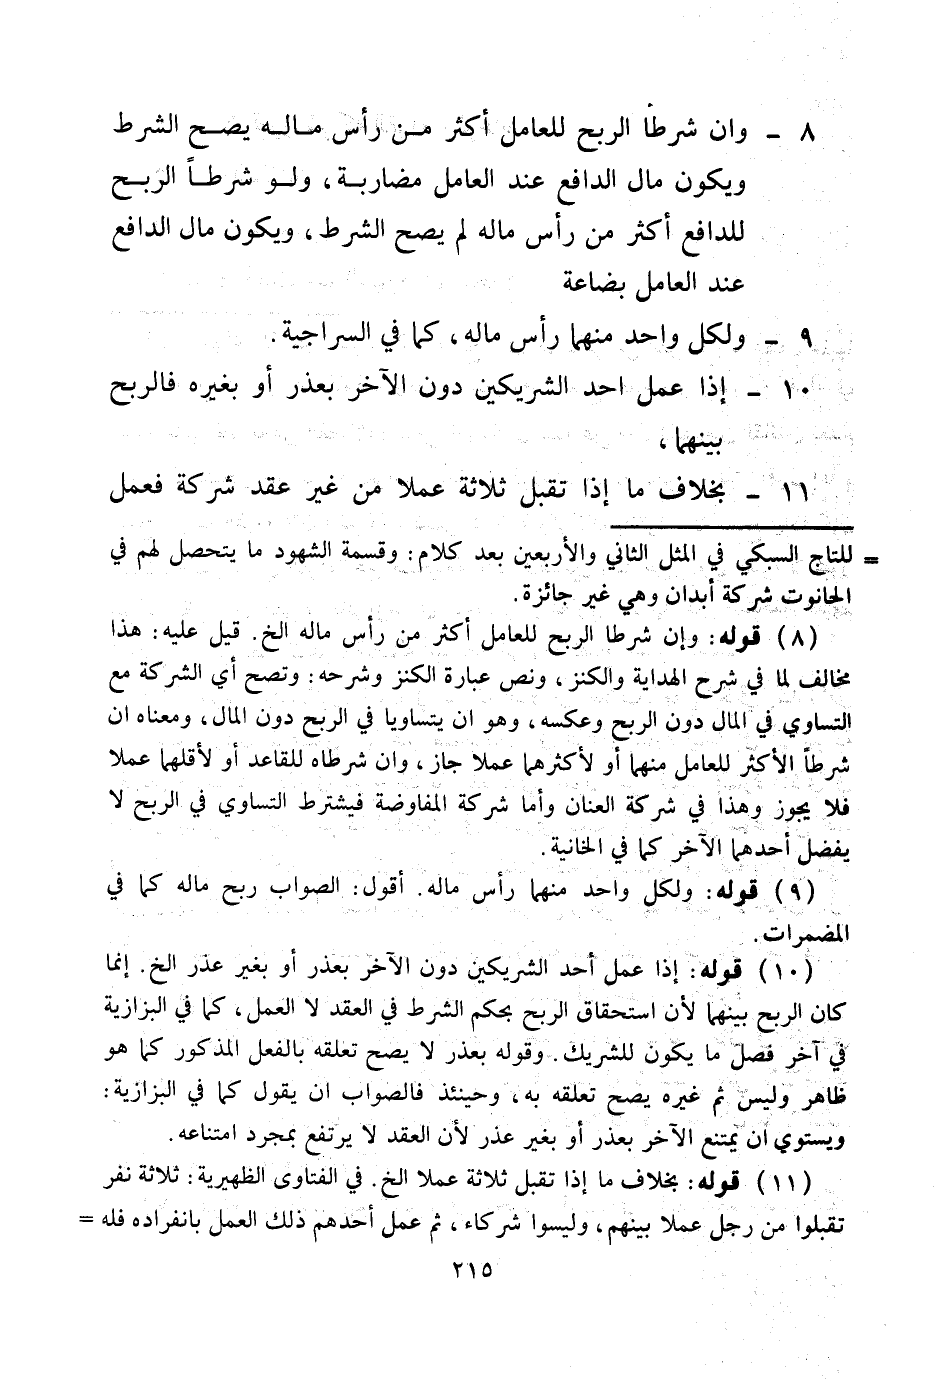 ٨ - وان شرطا الربح للعامل أكثر من رأس ماله يصح الشرط
ويكون مال الدافع عند العامل مضاربة، ولو شرطاً الربح
للدافع أكثر من رأس ماله لم يصح الشرط، ويكون مال الدافع
عند العامل بضاعة
٩ - ولكل واحد منهما رأس ماله، كما في السراجية.
١٠ - إذا عمل احد الشريكين دون الآخر بعذر أو بغيره فالربح
بينهما،
١١ - بخلاف ما إذا تقبل ثلاثة عملا من غير عقد شركة فعمل
= للتاج السبكي في المثل الثاني والأربعين بعد كلام: وقسمة الشهود ما يتحصل لهم في
الحانوت شركة أبدان وهي غير جائزة.
(٨) قوله: وإن شرطا الربح للعامل أكثر من رأس ماله الخ. قيل عليه: هذا
مخالف لما في شرح الهداية والكنز، ونص عبارة الكنز وشرحه: وتصح أي الشركة مع
التساوي في المال دون الربح وعكسه، وهو ان يتساويا في الربح دون المال، ومعناه ان
شرطاً الأكثر للعامل منهما أو لأكثرهما عملا جاز، وان شرطاه للقاعد أو لأقلهما عملا
فلا يجوز وهذا في شركة العنان وأما شركة المفاوضة فيشترط التساوي في الربح لا
يفضل أحدهما الآخر كما في الخانية.
(٩) قوله: ولكل واحد منهما رأس ماله. أقول: الصواب ربح ماله كما في
المضمرات.
(١٠) قوله: إذا عمل أحد الشريكين دون الآخر بعذر أو بغير عذر الخ. إنما
كان الربح بينهما لأن استحقاق الربح بحكم الشرط في العقد لا العمل، كما في البزازية
في آخر فصل ما يكون للشريك. وقوله بعذر لا يصح تعلقه بالفعل المذكور كما هو
ظاهر وليس ثم غيره يصح تعلقه به، وحينئذ فالصواب ان يقول كما في البزازية:
ويستوي ان يمتنع الآخر بعذر أو بغير عذر لأن العقد لا يرتفع بمجرد امتناعه.
(١١) قوله: بخلاف ما إذا تقبل ثلاثة عملا الخ. في الفتاوى الظهيرية: ثلاثة نفر
تقبلوا من رجل عملا بينهم، وليسوا شركاء، ثم عمل أحدهم ذلك العمل بانفراده فله =
٢١٥